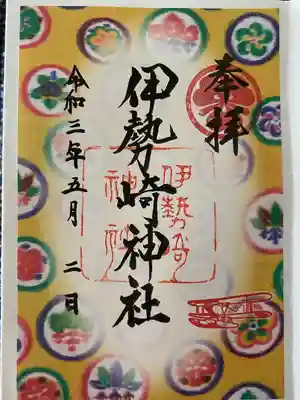 奉拝
伊勢崎神社
伊勢崎
神社
令和三年五月二日